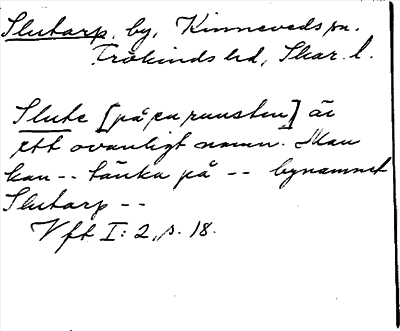 Slutarp, by, Kinneveds sn.
Frökinds hd, Skar. l.
Slute [på en runsten] är
ett ovanligt namn. Man
kan -- tänka på -- bynamnet
Slutarp --
Vft I: 2, s. 18.